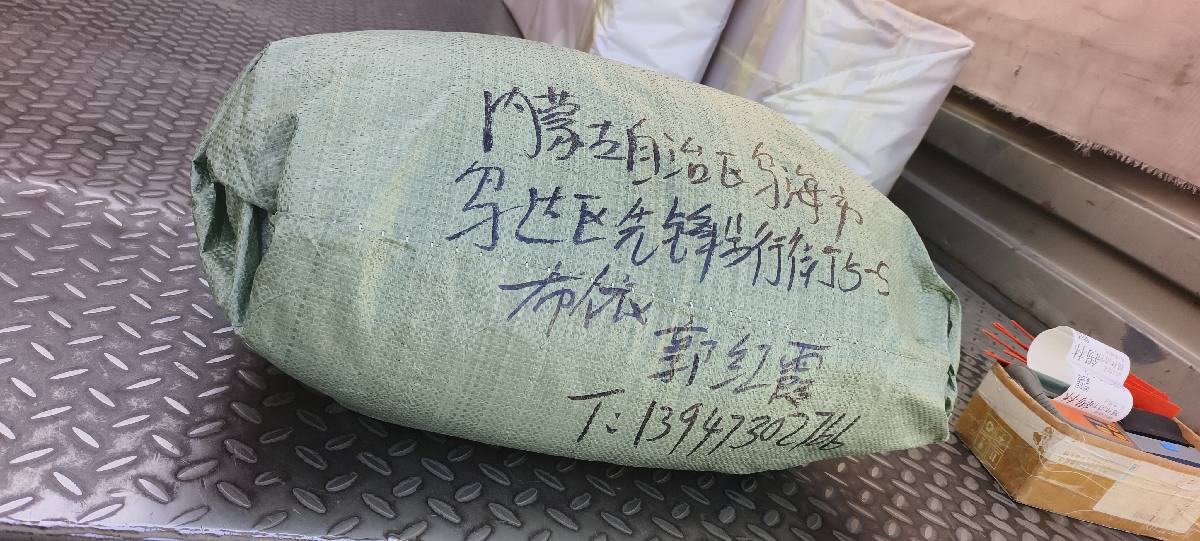 内蒙古自治区乌海市
乌达区先锋步行街J5-5
布依
郭红霞
T:13947302766